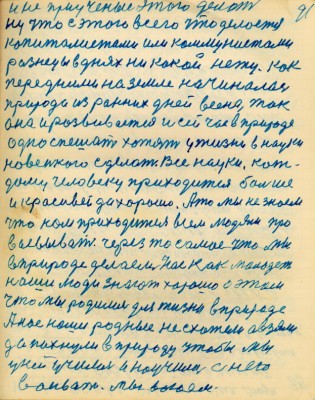 91
и не приученые этого делат
ну что с этого всего это делается
капиталистами или коммунистами
разнецы в днях ни какой нету. Как
передними на земле началась
природа из ранних дней весна, так
она и розвивается и сейчас в природе
одно спешат хотят у жизни в науки
новенкого сделат. Все науки, кож-
дому человеку приходится больше
и красивей да хорошо. А то мы не знаем
что нам приходится всем людям про
валывать через то самое, что мы
в природе делаем. Нас как молодет
наши люди знают хорошо о этом
что мы родилис для жизни в природе
А нас наши родные не схотели а взяли
да похнули в природу чтобы мы
у ней училис и научилис с него
воеват. мы воюем.